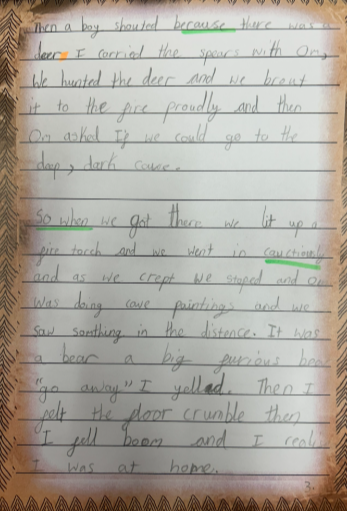 Then a boy shouted because there was a
deer. I carried the spears with Om,
We hunted the deer and we brout
it to the fire proudly and then
Om asked If we could go to the
deep, dark cave.
So when we got there we lit up a
fire torch and we went in cauctiously
and as we crept We stoped and Om
was doing cave paintings and we
saw somthing in the distence. It was
a bear a big furious bear
"go away" I yelled. Then I
felt the floor crumble then
I fell boom and I reali
I was at home.
3.